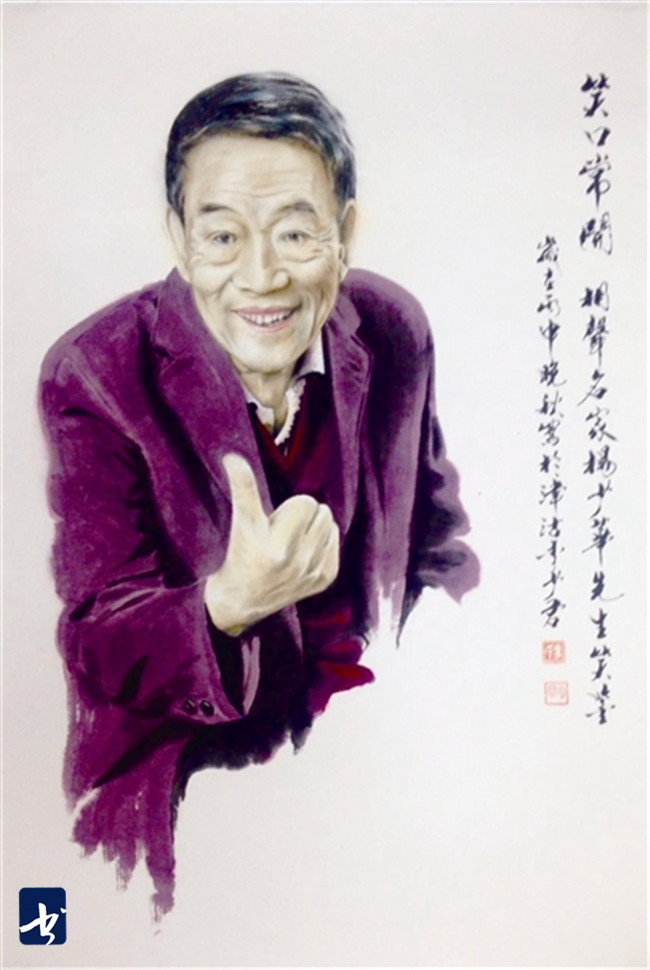 笑口常開 相聲名家楊少華先生笑鑒
歲在丙申晚秋寫於津沽李少君
书